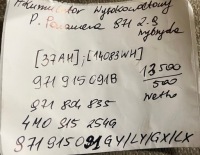 Akumulator Wysokonapięciowy
P. Panamera 971 2.9
hybryda
[37AH]; [14083WH]
971915091B
13500
500
Netto
971 804 835
4M0 915 254G
971915091GY/LY/GX/LX